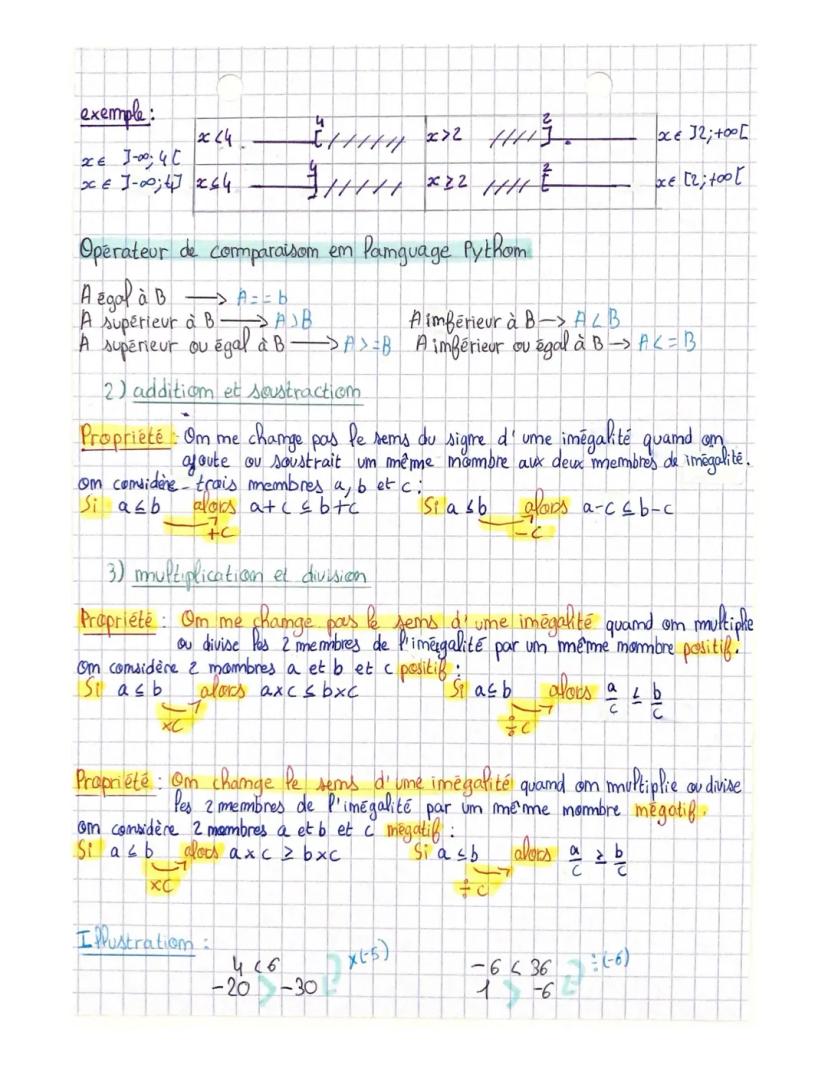 exemple :
4 2
x<4 [///// x>2 ////] x∈ ]2;+∞[
x∈ ]-∞;4[
4 2
x∈ ]-∞;4] x≤4 ]///// x≥2 ////[ x∈ [2;+∞[
Opérateur de comparaison en languague Python
A égal à B → A==b
A supérieur à B → A>B A inférieur à B → A<B
A supérieur ou égal à B → A>=B A inférieur ou égal à B → A<=B
2) addition et soustraction
Propriété : On ne change pas le sens du signe d'une inégalité quand on
ajoute ou soustrait un même nombre aux deux membres de inégalité.
on considère trois membres a, b et c :
Si a≤b alors a+c ≤ b+c Si a≤b alors a-c ≤ b-c
+c -c
3) multiplication et division
Propriété : On ne change pas le sens d'une inégalité quand on multiplie
ou divise les 2 membres de l'inégalité par un même nombre positif.
On considère 2 nombres a et b et c positif :
Si a≤b alors a×c ≤ b×c Si a≤b alors a/c ≤ b/c
×c ÷c
Propriété : On change le sens d'une inégalité quand on multiplie ou divise
les 2 membres de l'inégalité par un même nombre négatif.
on considère 2 nombres a et b et c négatif :
Si a≤b alors a×c ≥ b×c Si a≤b alors a/c ≥ b/c
×c ÷c
Illustration :
4<6 ×(-5) -6 < 36 ÷(-6)
-20 > -30 1 > -6